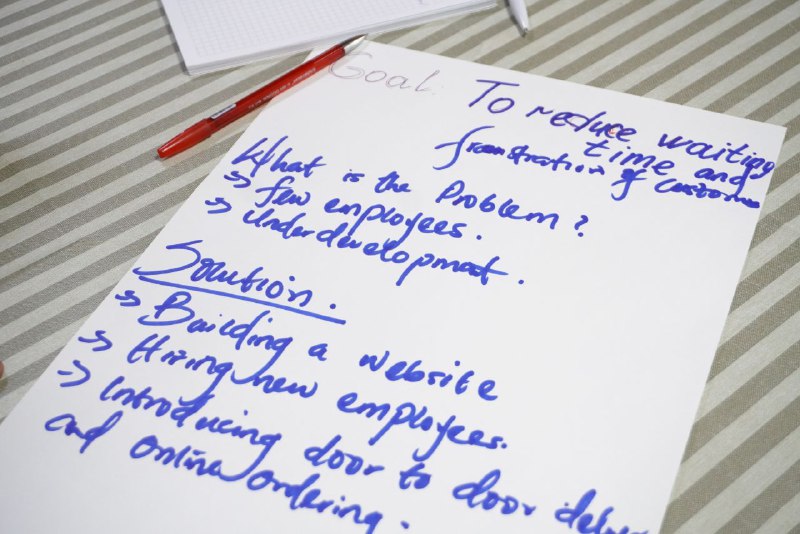 Goal: To reduce waiting
time and
fronstration of Customers
What is the Problem?
→ few employees.
→ Underdevelopmat.
Solution.
→ Building a website
→ Hiring new employees.
→ Introducing door to door
and online ordering.